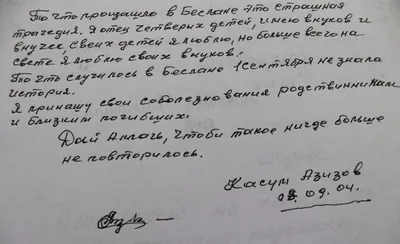 То что произашло в Беслане это страшная
трагедия. Я отец четверых детей, имею внуков и
внучек, своих детей я люблю, но больше всего на
свете я люблю своих внуков.
То что случилось в Беслане 1 сентября не знала
история.
Я приношу свои соболезнования родственникам
и близким погибших.
Дай Аллагь, чтоби такое нигде больше
не повторилось.
Касум Азизов
08.09.04.